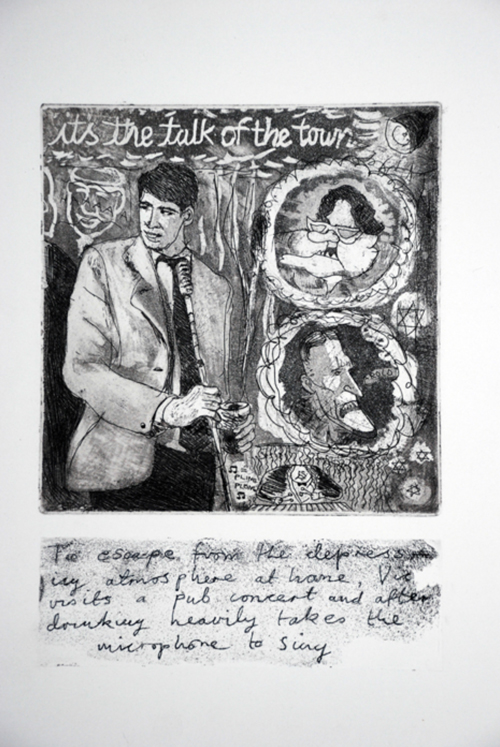 its the talk of the town
To escape from the depress
ing atmosphere at home, Vic
visits a pub concert and after
drinking heavily takes the
microphone to sing